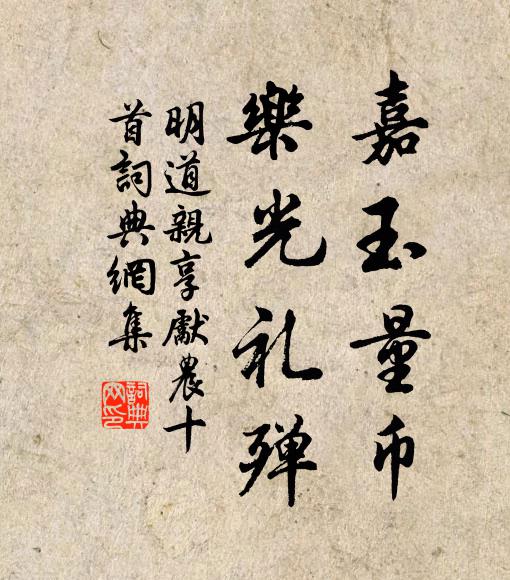 嘉玉量币
樂光礼殫
明道親享獻農十
首詞典網集
詞典